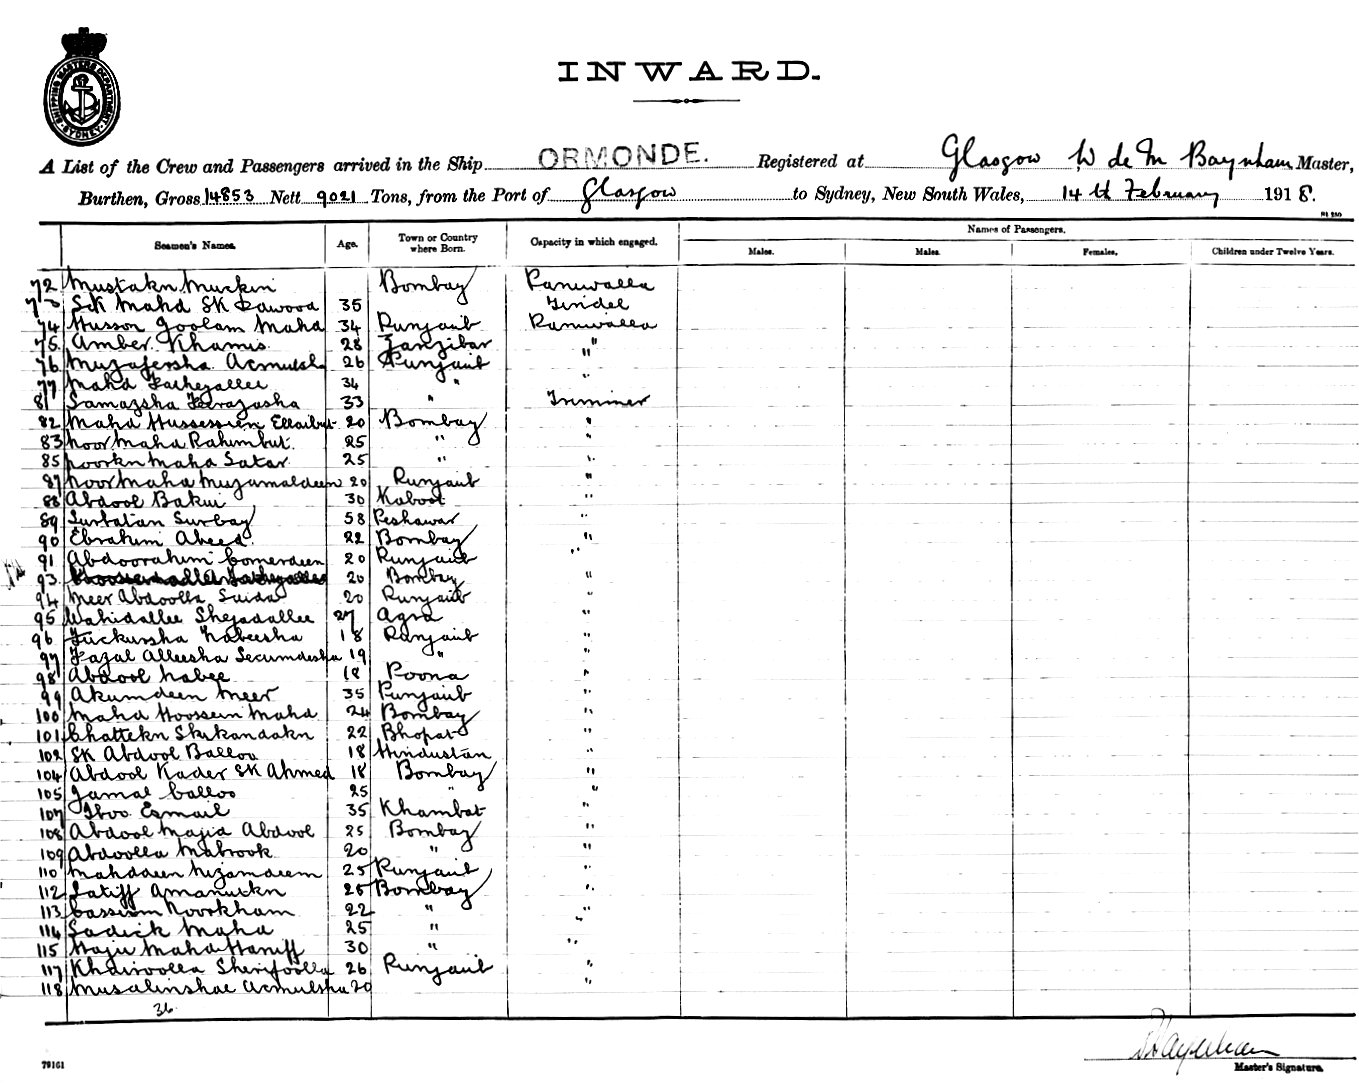 SHIPPING MASTERS DEPARTMENT. SYDNEY
INWARD.
A List of the Crew and Passengers arrived in the Ship ORMONDE. Registered at Glasgow W de M Baynham Master,
Burthen, Gross 14853 Nett 9021 Tons, from the Port of Glasgow to Sydney, New South Wales, 14th February 1918.
Names of Passengers.
Seamen's Names. Age. Town or Country where Born. Capacity in which engaged. Males. Males. Females. Children under Twelve Years.
72 Mustakn Murkin Bombay Paniwalla
Sk Mahd Sk Dawood 35 Tindel
74 Husson Goolam Mahd 34 Punjaub Paniwalla
75 Amber Khamis 28 Zanzibar "
76 Muzafersha Acmulsha 26 Punjaub "
77 Mahd Fatheyallee 34 " "
81 Samazsha Ferazasha 33 " Trimmer
82 Mahd Hussessien 20 Bombay "
83 Noor Mahd Rahimbut 25 " "
85 Noorkn Mahd Satar 25 " "
87 Noor Mahd Muzamaldeen 20 Punjaub "
88 Abdool Bakui 30 Kabool "
89 Surbatan Surbay 58 Peshawar "
90 Ebrahim Abeed. 22 Bombay "
91 Abdoorahim Comerdeen 20 Punjaub "
93. 20 Bombay "
94 Meer Abdoolla Suida 20 Punjaub "
95 Wahidallee Shezadallee 27 Agra "
96 Fuckursha Nabeesha 18 Punjaub "
97 Fazal Alleesha Secumdesha 19 " "
98 Abdool Nabee 18 Poona "
99 Akumdeen Meer 35 Punjaub "
100 Mahd Hoossein Mahd 24 Bombay "
101 Chattekn Shikandakn 22 Bhopal "
102 SK Abdool Balloo 18 Hindustan "
104 Abdool Kader SK Ahmed 18 Bombay "
105 Jamal Balloo 25 " "
107 Iboo Esmail 35 Khambat "
108 Abdool Majid Abdool 25 Bombay "
109 Abdoolla Mabrook 20 " "
110 Mahddeen Nizamdeem 25 Punjaub "
112 Latiff Amanutkn 25 Bombay "
113 Cassium Noorkham 22 " "
114 Sadick Mahd 25 " "
115 Haju Mahd Haniff 30 " "
117 Khdiroolla Sherifoolla 26 Punjaub "
118 Musalinshae Acmulsha 20 "
36
Baynham
79161 Master's Signature.